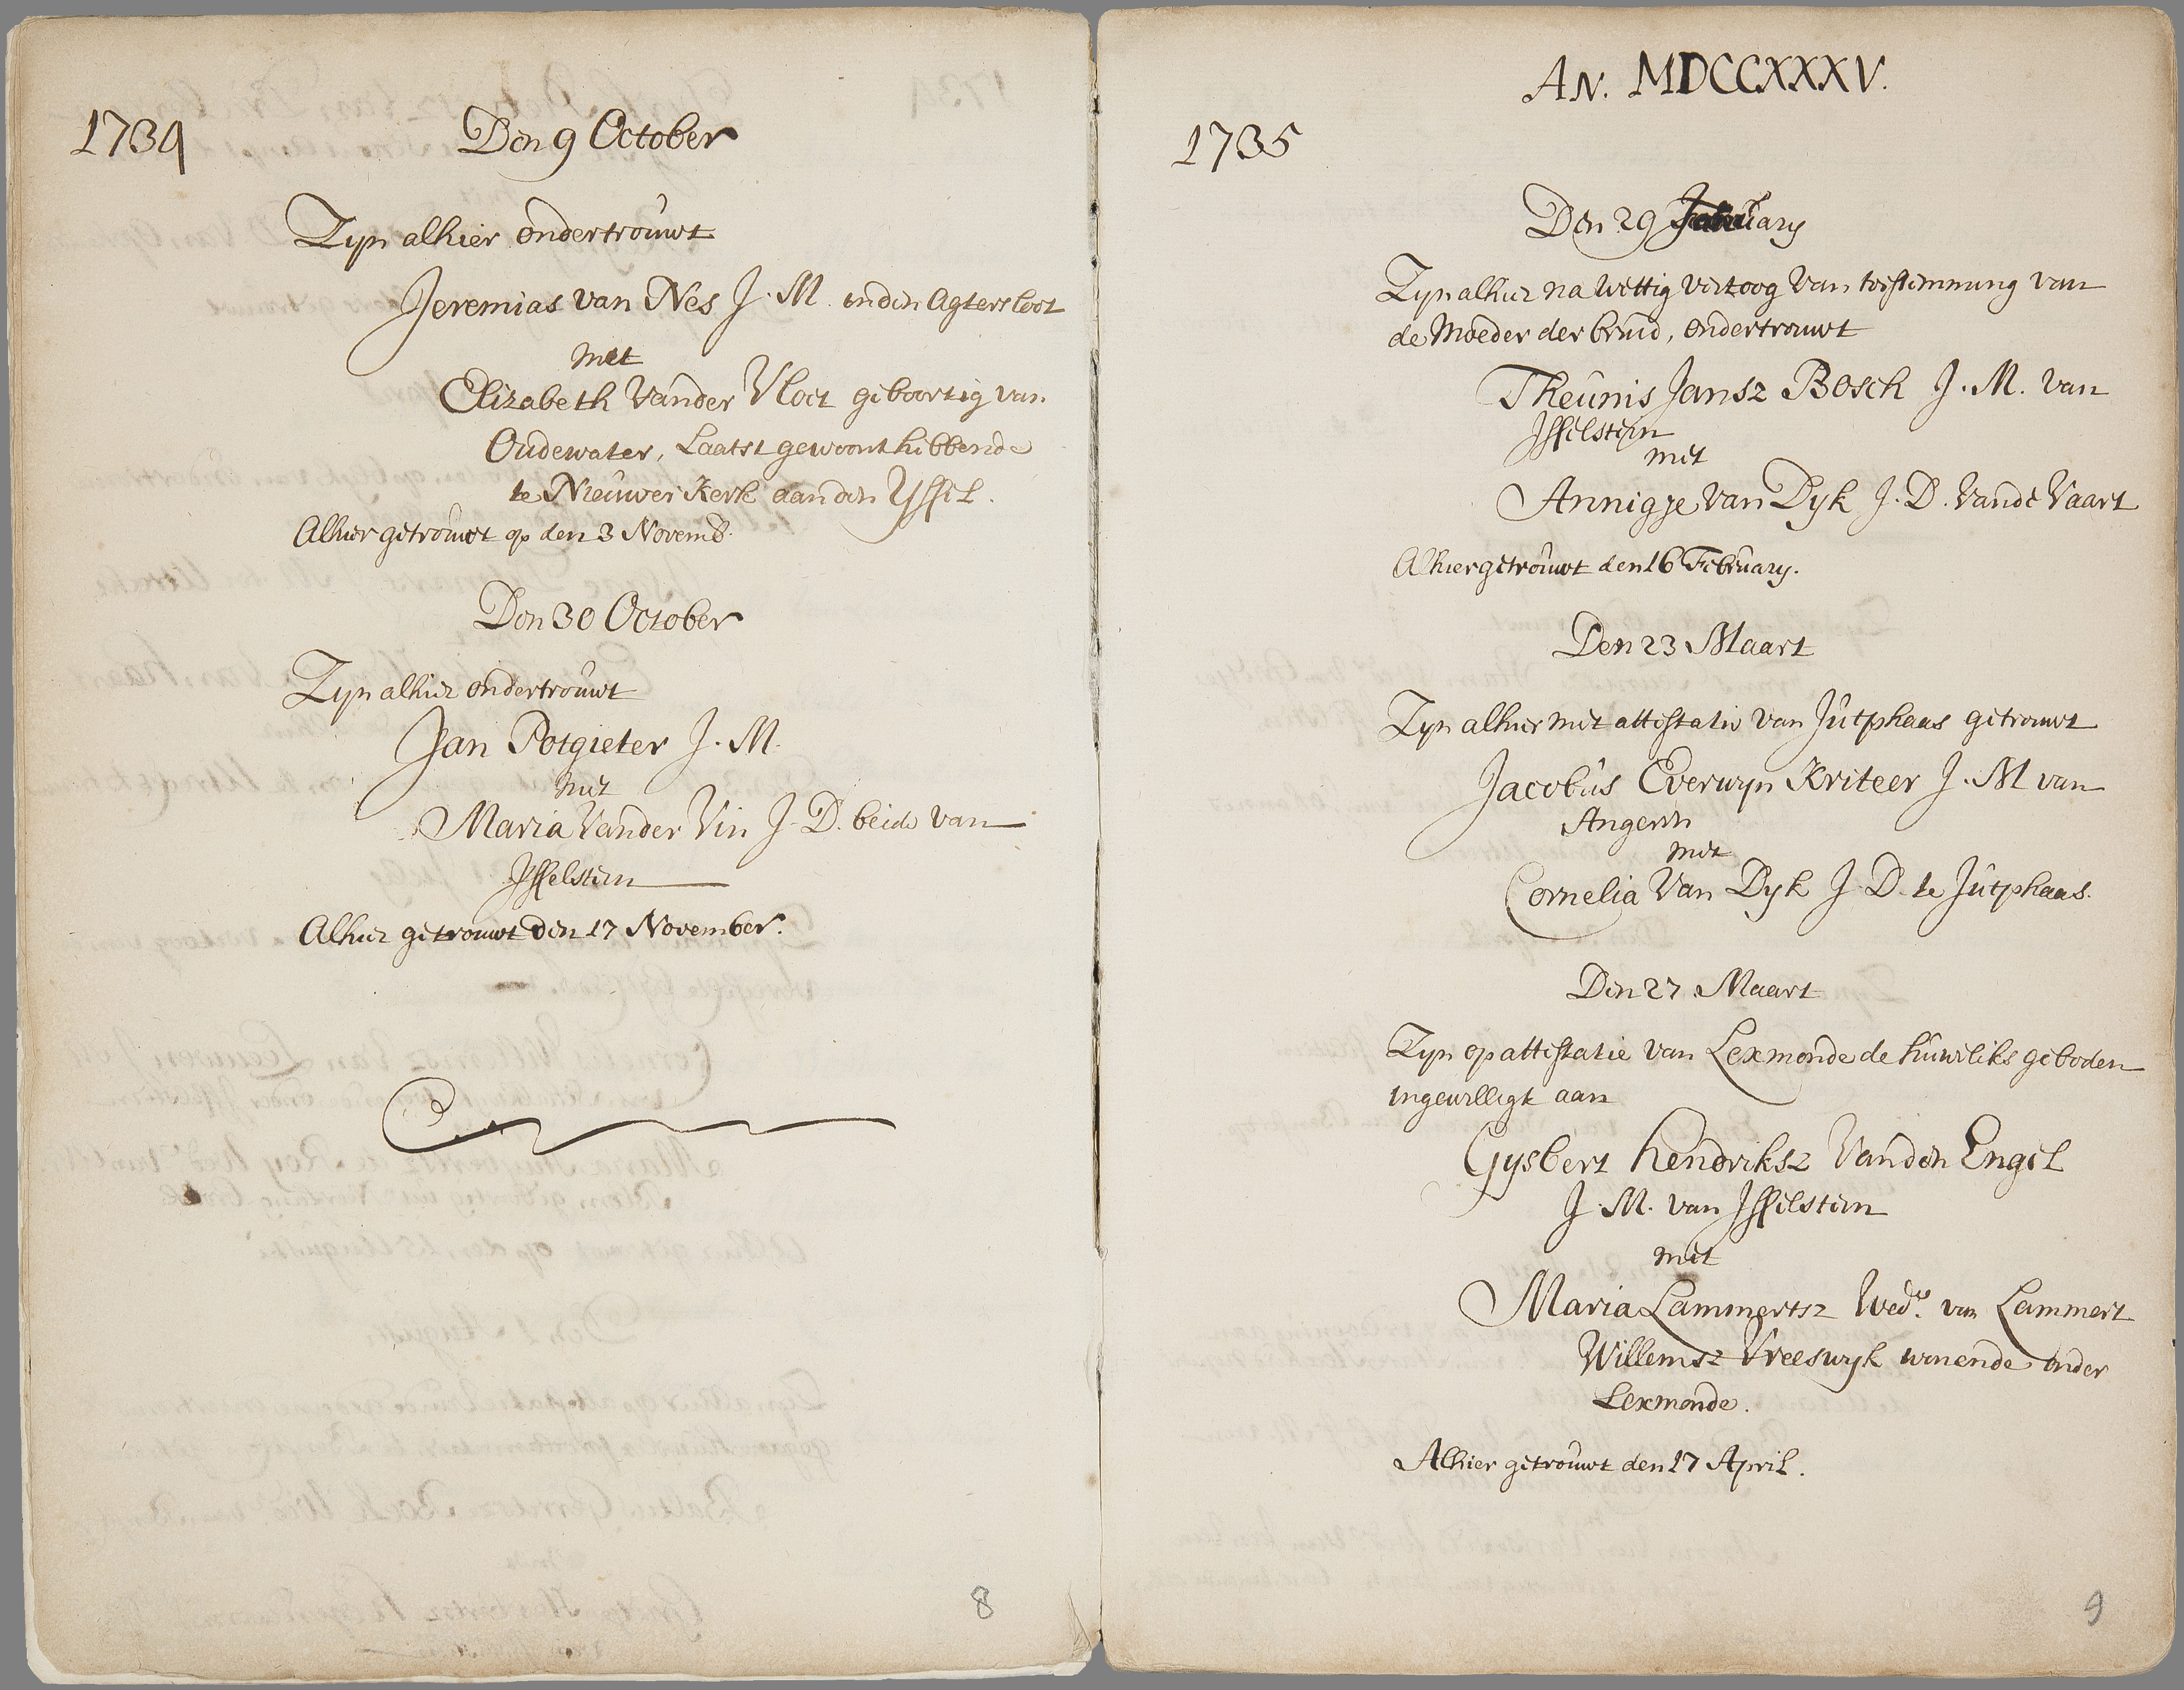 1734
Den 9 October
Zyn alhier ondertrouwt
Jeremias van Nes J. M. in den Agtersloot
met
Elizabeth Vander Vloet geboortig van
Oudewater, Laatst gewoont hebbende
te Nieuwer Kerk aan den Yssel.
Alhier getrouwt op den 3 Novemb.
Den 30 October
Zyn alhier ondertrouwt
Jan Potgieter J. M.
met
Maria Vander Vin J. D. beide van
Isselstein
Alhier getrouwt den 17 November.
8
AN. MDCCXXXV.
1735
Den 29 January
Zyn alhier na wettig vertoog van toestemming van
de Moeder der bruid, ondertrouwt
Theunis Jansz Bosch J. M. van
Isselstein
met
Annigje Van Dyk J. D. Vande Vaart
Alhier getrouwt den 16 February.
Den 23 Maart
Zyn alhier met attestatie van Jutphaas getrouwt
Jacobus Everwyn Kriteer J. M van
Angeren
met
Cornelia Van Dyk J. D. te Jutphaas.
Den 27 Maart
Zyn op attestatie van Lexmonde de huweliks geboden
ingewilligt aan
Gysbert Hendriksz Vanden Engel
J. M. van Isselstein
met
Maria Lammertsz Wed.e van Lammert
Willemsz Vreeswyk wonende onder
Lexmonde.
Alhier getrouwt den 17 April.
9